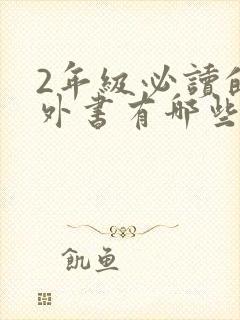 2年級必讀的
外書有哪些
飢魚